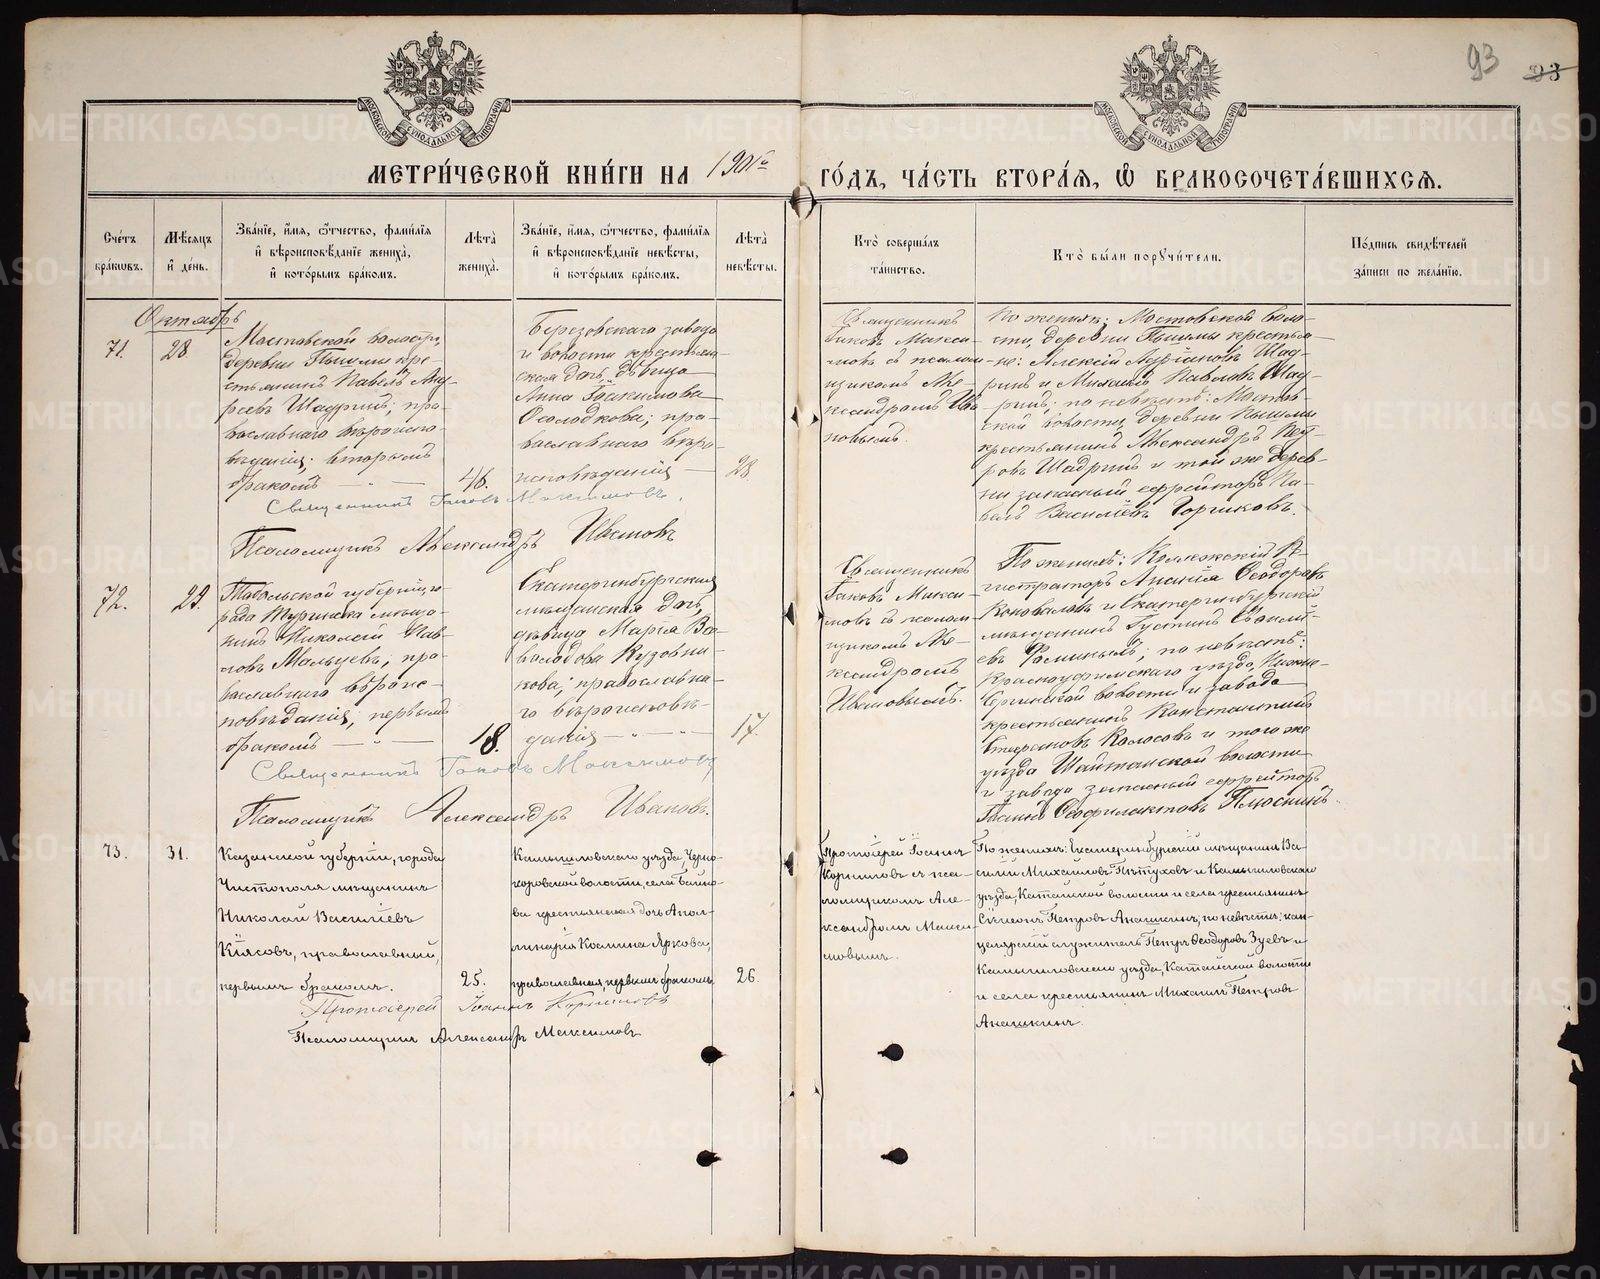 93
93
МЕТРИ́ЧЕСКОЙ КНИ́ГИ НА 1901й ГО́ДЪ, ЧА́СТЬ ВТОРА́Я, Ѡ БРАКОСОЧЕТА́ВШИХСѦ.
Сче́тъ бра́кѡвъ.
Мѣ́сяцъ и҆ де́нь.
Зва́нїе, и҆́мя, ѻ҆́тчество, фами́лїя
и҆ вѣроисповѣ́данїе жениха̀,
и҆ кото́рымъ бра́комъ.
Лѣ́та жениха̀.
Зва́нїе, и҆́мя, ѻ҆́тчество, фами́лїя
и҆ вѣроисповѣ́данїе невѣ́сты,
и҆ кото́рымъ бра́комъ.
Лѣ́та невѣ́сты.
Кто̀ соверша́лъ
та́инство.
Кто̀ бы́ли порꙋчи́тели.
По́дпись свидѣ́телей
за́писи по жела́нїю.
Октябрь
71.
28
Мостовской волости,
деревни Пышмы кре-
стьянинъ Павелъ Анд-
реевъ Шадринъ; пра-
вославнаго вѣроиспо-
вѣданія; вторымъ
бракомъ
46.
Березовскаго завода
и волости крестьян-
ская дочь, дѣвица
Анна Іоакимова
Осолодкова; пра-
вославнаго вѣро-
исповѣданія
28
Священникъ
Іаковъ Макси-
мовъ съ псалом-
щикомъ Але-
ксандромъ Ива-
новымъ.
По женихѣ: Мостовской воло-
сти, деревни Пышмы крестья-
не: Алексій Адріановъ Шад-
ринъ и Михаилъ Павловъ Шад-
ринъ; по невѣстѣ: Мостов-
ской волости, деревни Пышмы
крестьянинъ Александръ Пет-
ровъ Шадринъ и той же дерев-
ни запасный ефрейторъ Па-
велъ Василіевъ Горшковъ.
Священникъ Іаковъ Максимовъ.
Псаломщикъ Александръ Ивановъ
72.
29.
Тобольской губерніи го-
рода Туринска мѣща-
нинъ Николай Пав-
ловъ Мальцевъ; пра-
вославнаго вѣроис-
повѣданія; первымъ
бракомъ
18.
Екатеринбургская
мѣщанская дочь,
дѣвица Марія Все-
володова Кузовни-
кова; православна-
го вѣроисповѣ-
данія
17.
Священникъ
Іаковъ Макси-
мовъ съ псалом-
щикомъ Але-
ксандромъ
Ивановымъ.
По женихѣ: Коллежскій Ре-
гистраторъ Ананія Ѳеодоровъ
Коноваловъ и Екатеринбургскій
мѣщанинъ Іустинъ
евъ Ѳоминыхъ; по невѣстѣ:
Красноуфимскаго уѣзда, Нижне-
Сергинской волости и завода
крестьянинъ Константинъ
Стефановъ Колосовъ и того же
уѣзда Шайтанской волости
и завода запасный ефрейторъ
Іоаннъ Ѳеофилактовъ Плюснинъ.
Священникъ Іаковъ Максимовъ
Псаломщикъ Александръ Ивановъ.
73.
31.
Казанской губерніи, города
Чистополя мѣщанинъ
Николай Василіевъ
Кіясовъ, православный,
первымъ бракомъ.
25.
Камышловскаго уѣзда, Черно-
коровской волости, села Байно-
ва крестьянская дочь Апол-
линарія Космина Яркова,
православная, первымъ бракомъ.
26.
Протоіерей Іоаннъ
Корниловъ съ пса-
ломщикомъ Але-
ксандромъ Макси-
мовымъ.
По женихѣ: Екатеринбургскій мѣщанинъ Ва-
силій Михаиловъ Пѣтуховъ и Камышловскаго
уѣзда, Катайской волости и села крестьянинъ
Сѵмеонъ Петровъ Анашкинъ; по невѣстѣ: кан-
целярскій служитель Петръ Ѳеодоровъ Зуевъ и
Камышловскаго уѣзда, Катайской волости
и села крестьянинъ Михаилъ Петровъ
Анашкинъ.
Протоіерей Іоаннъ Корниловъ
Псаломщикъ Александръ Максимовъ